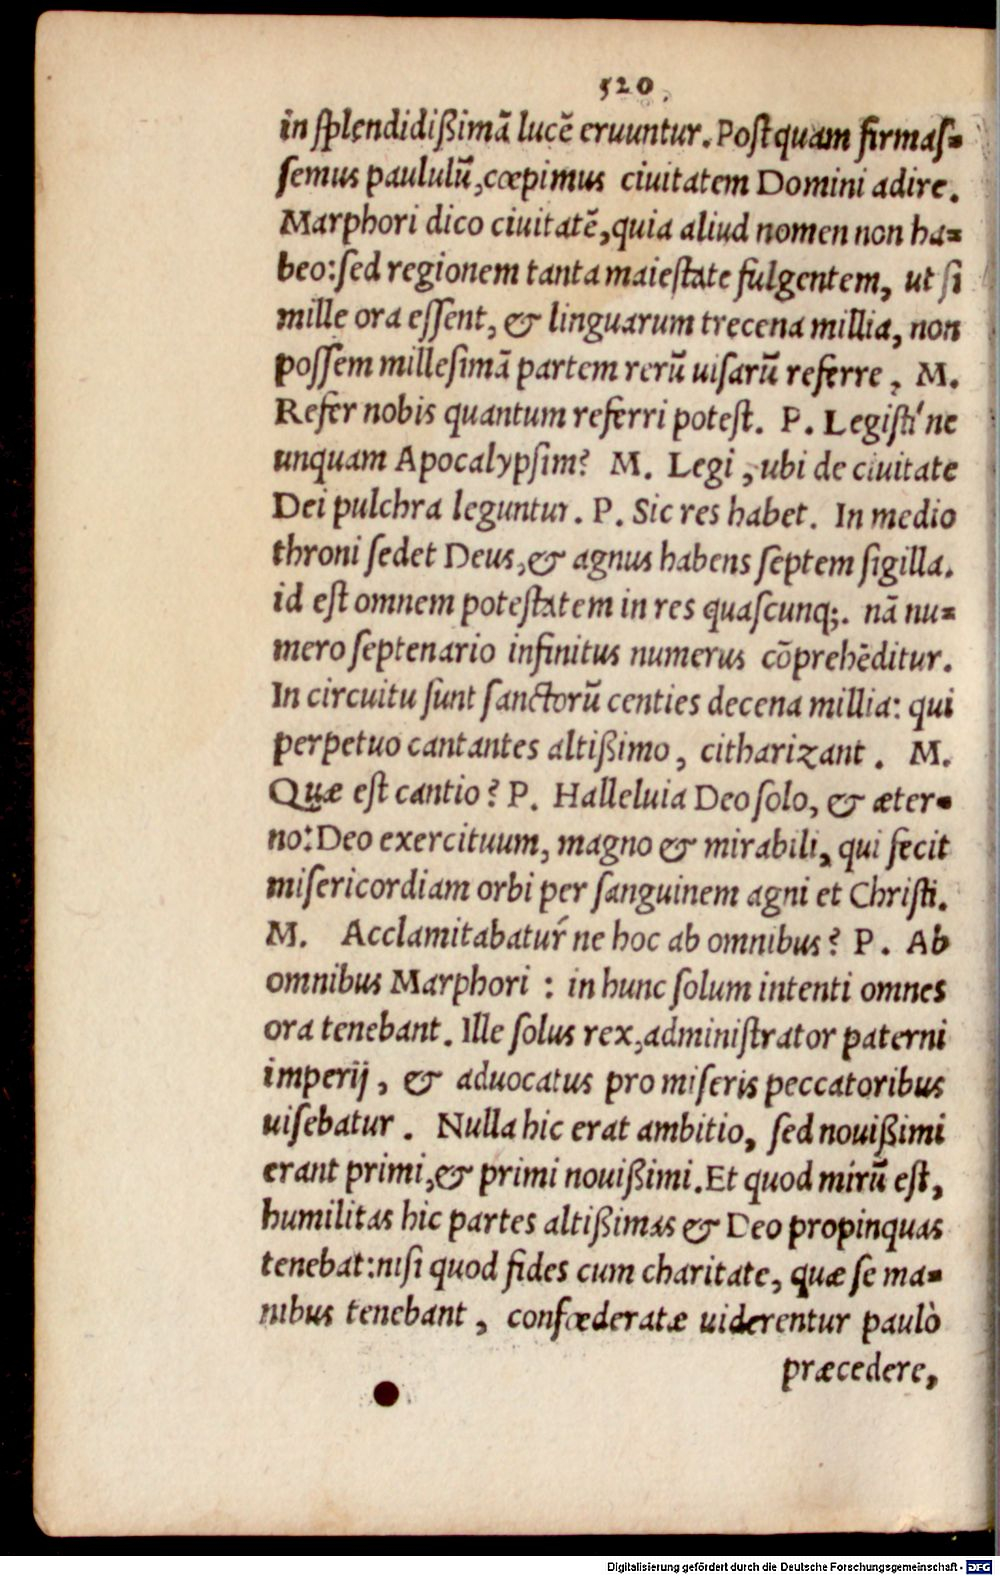 520.
in splendidißimā lucē eruuntur. Postquam firmas=
semus paululū, cœpimus ciuitatem Domini adire.
Marphori dico ciuitatē, quia aliud nomen non ha=
beo: sed regionem tanta maiestate fulgentem, ut si
mille ora essent, & linguarum trecena millia, non
possem millesimā partem rerū uisarū referre, M.
Refer nobis quantum referri potest. P. Legisti'ne
unquam Apocalypsim? M. Legi, ubi de ciuitate
Dei pulchra leguntur. P. Sic res habet. In medio
throni sedet Deus, & agnus habens septem sigilla.
id est omnem potestatem in res quascunq;. nā nu=
mero septenario infinitus numerus cōprehēditur.
In circuitu sunt sanctorū centies decena millia: qui
perpetuo cantantes altißimo, citharizant. M.
Quæ est cantio? P. Halleluia Deo solo, & æter=
no: Deo exercituum, magno & mirabili, qui fecit
misericordiam orbi per sanguinem agni et Christi.
M. Acclamitabatur' ne hoc ab omnibus? P. Ab
omnibus Marphori: in hunc solum intenti omnes
ora tenebant. Ille solus rex, administrator paterni
imperij, & aduocatus pro miseris peccatoribus
uisebatur. Nulla hic erat ambitio, sed nouißimi
erant primi, & primi nouißimi. Et quod mirū est,
humilitas hic partes altißimas & Deo propinquas
tenebat: nisi quod fides cum charitate, quæ se ma=
nibus tenebant, confœderatæ uiderentur paulò
præcedere,
Digitalisierung gefördert durch die Deutsche Forschungsgemeinschaft - DFG